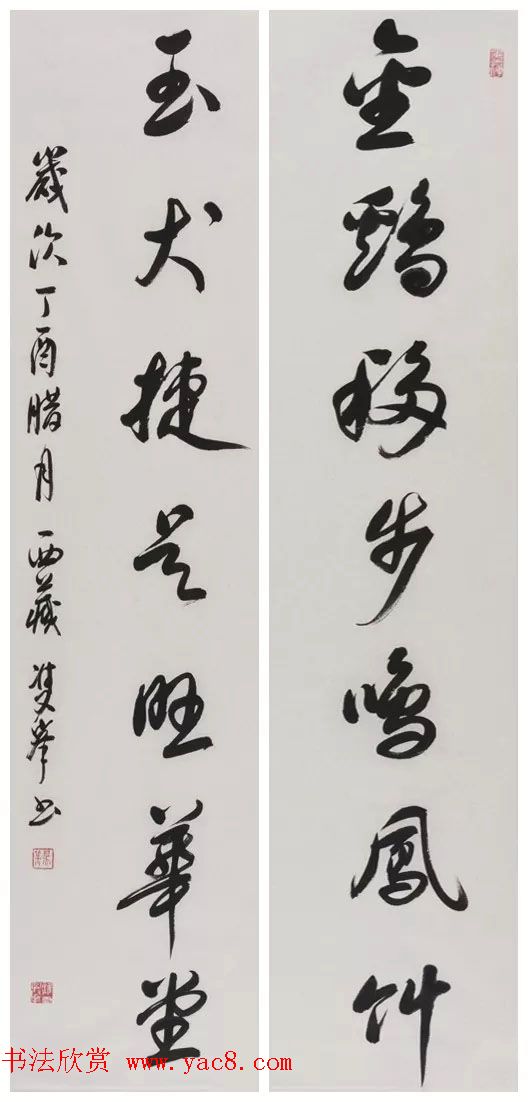 金鷄移步鳴鳳
玉犬捷足旺華堂
歲次丁酉腊月西藏雙峯书
书法欣赏 www.yac8.com